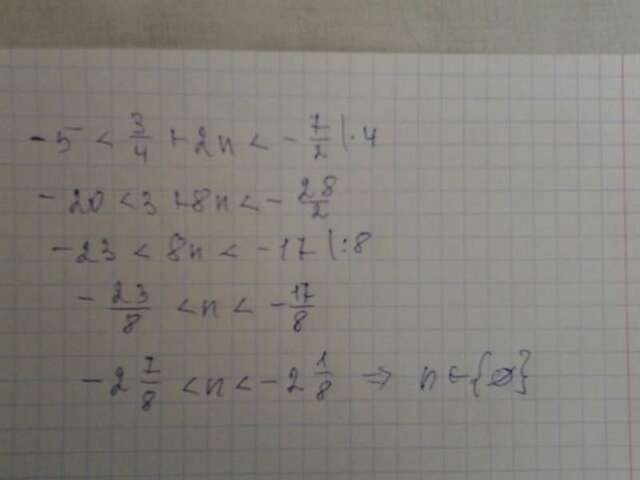 -5 < 3/4 + 2n < - 7/2 | · 4
-20 < 3 + 8n < - 28/2
-23 < 8n < -17 | : 8
- 23/8 < n < - 17/8
-2 7/8 < n < -2 1/8 ⇒ n ∈ {∅}